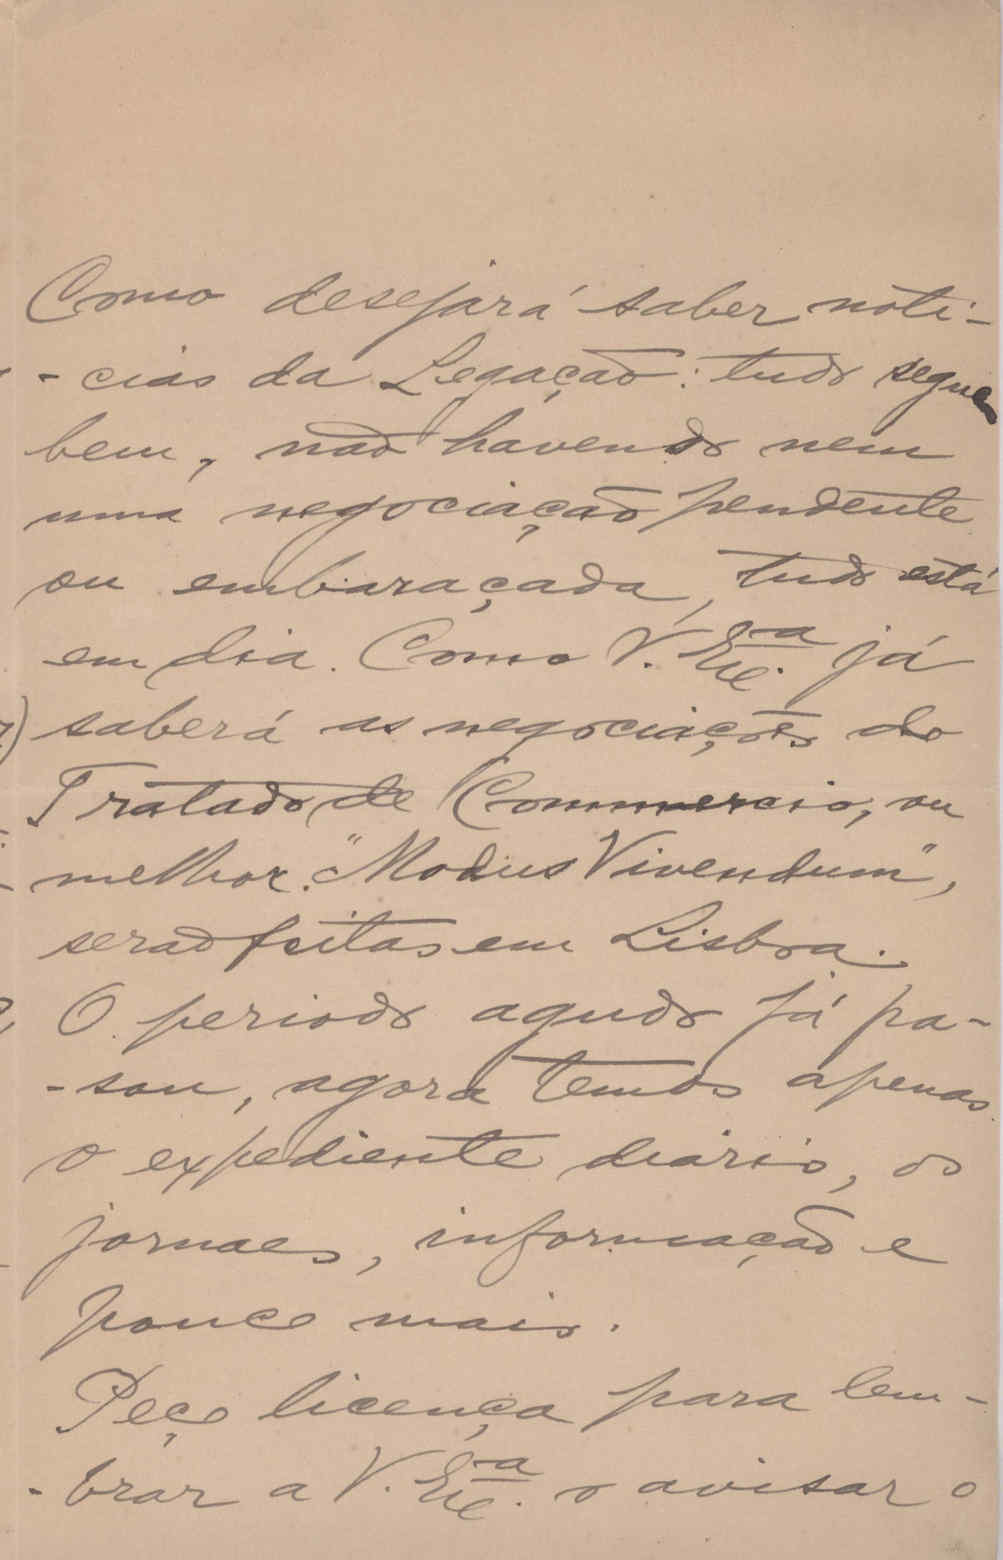 Como desejará saber noti-
- cias da Legação: tudo segue
bem, não havendo nem
uma negociação pendente
ou embaraçada, tudo está
em dia. Como V. Exc.ª já
saberá as negociações do
Tratado de Commercio, ou
melhor "Modus Vivendum",
serão feitas em Lisboa.
O periodo agudo já pa-
- sou, agora temos apenas
o expediente diario, os
jornaes, informação e
pouco mais.
Peço licença para lem-
- brar a V. Exc.ª o avisar o